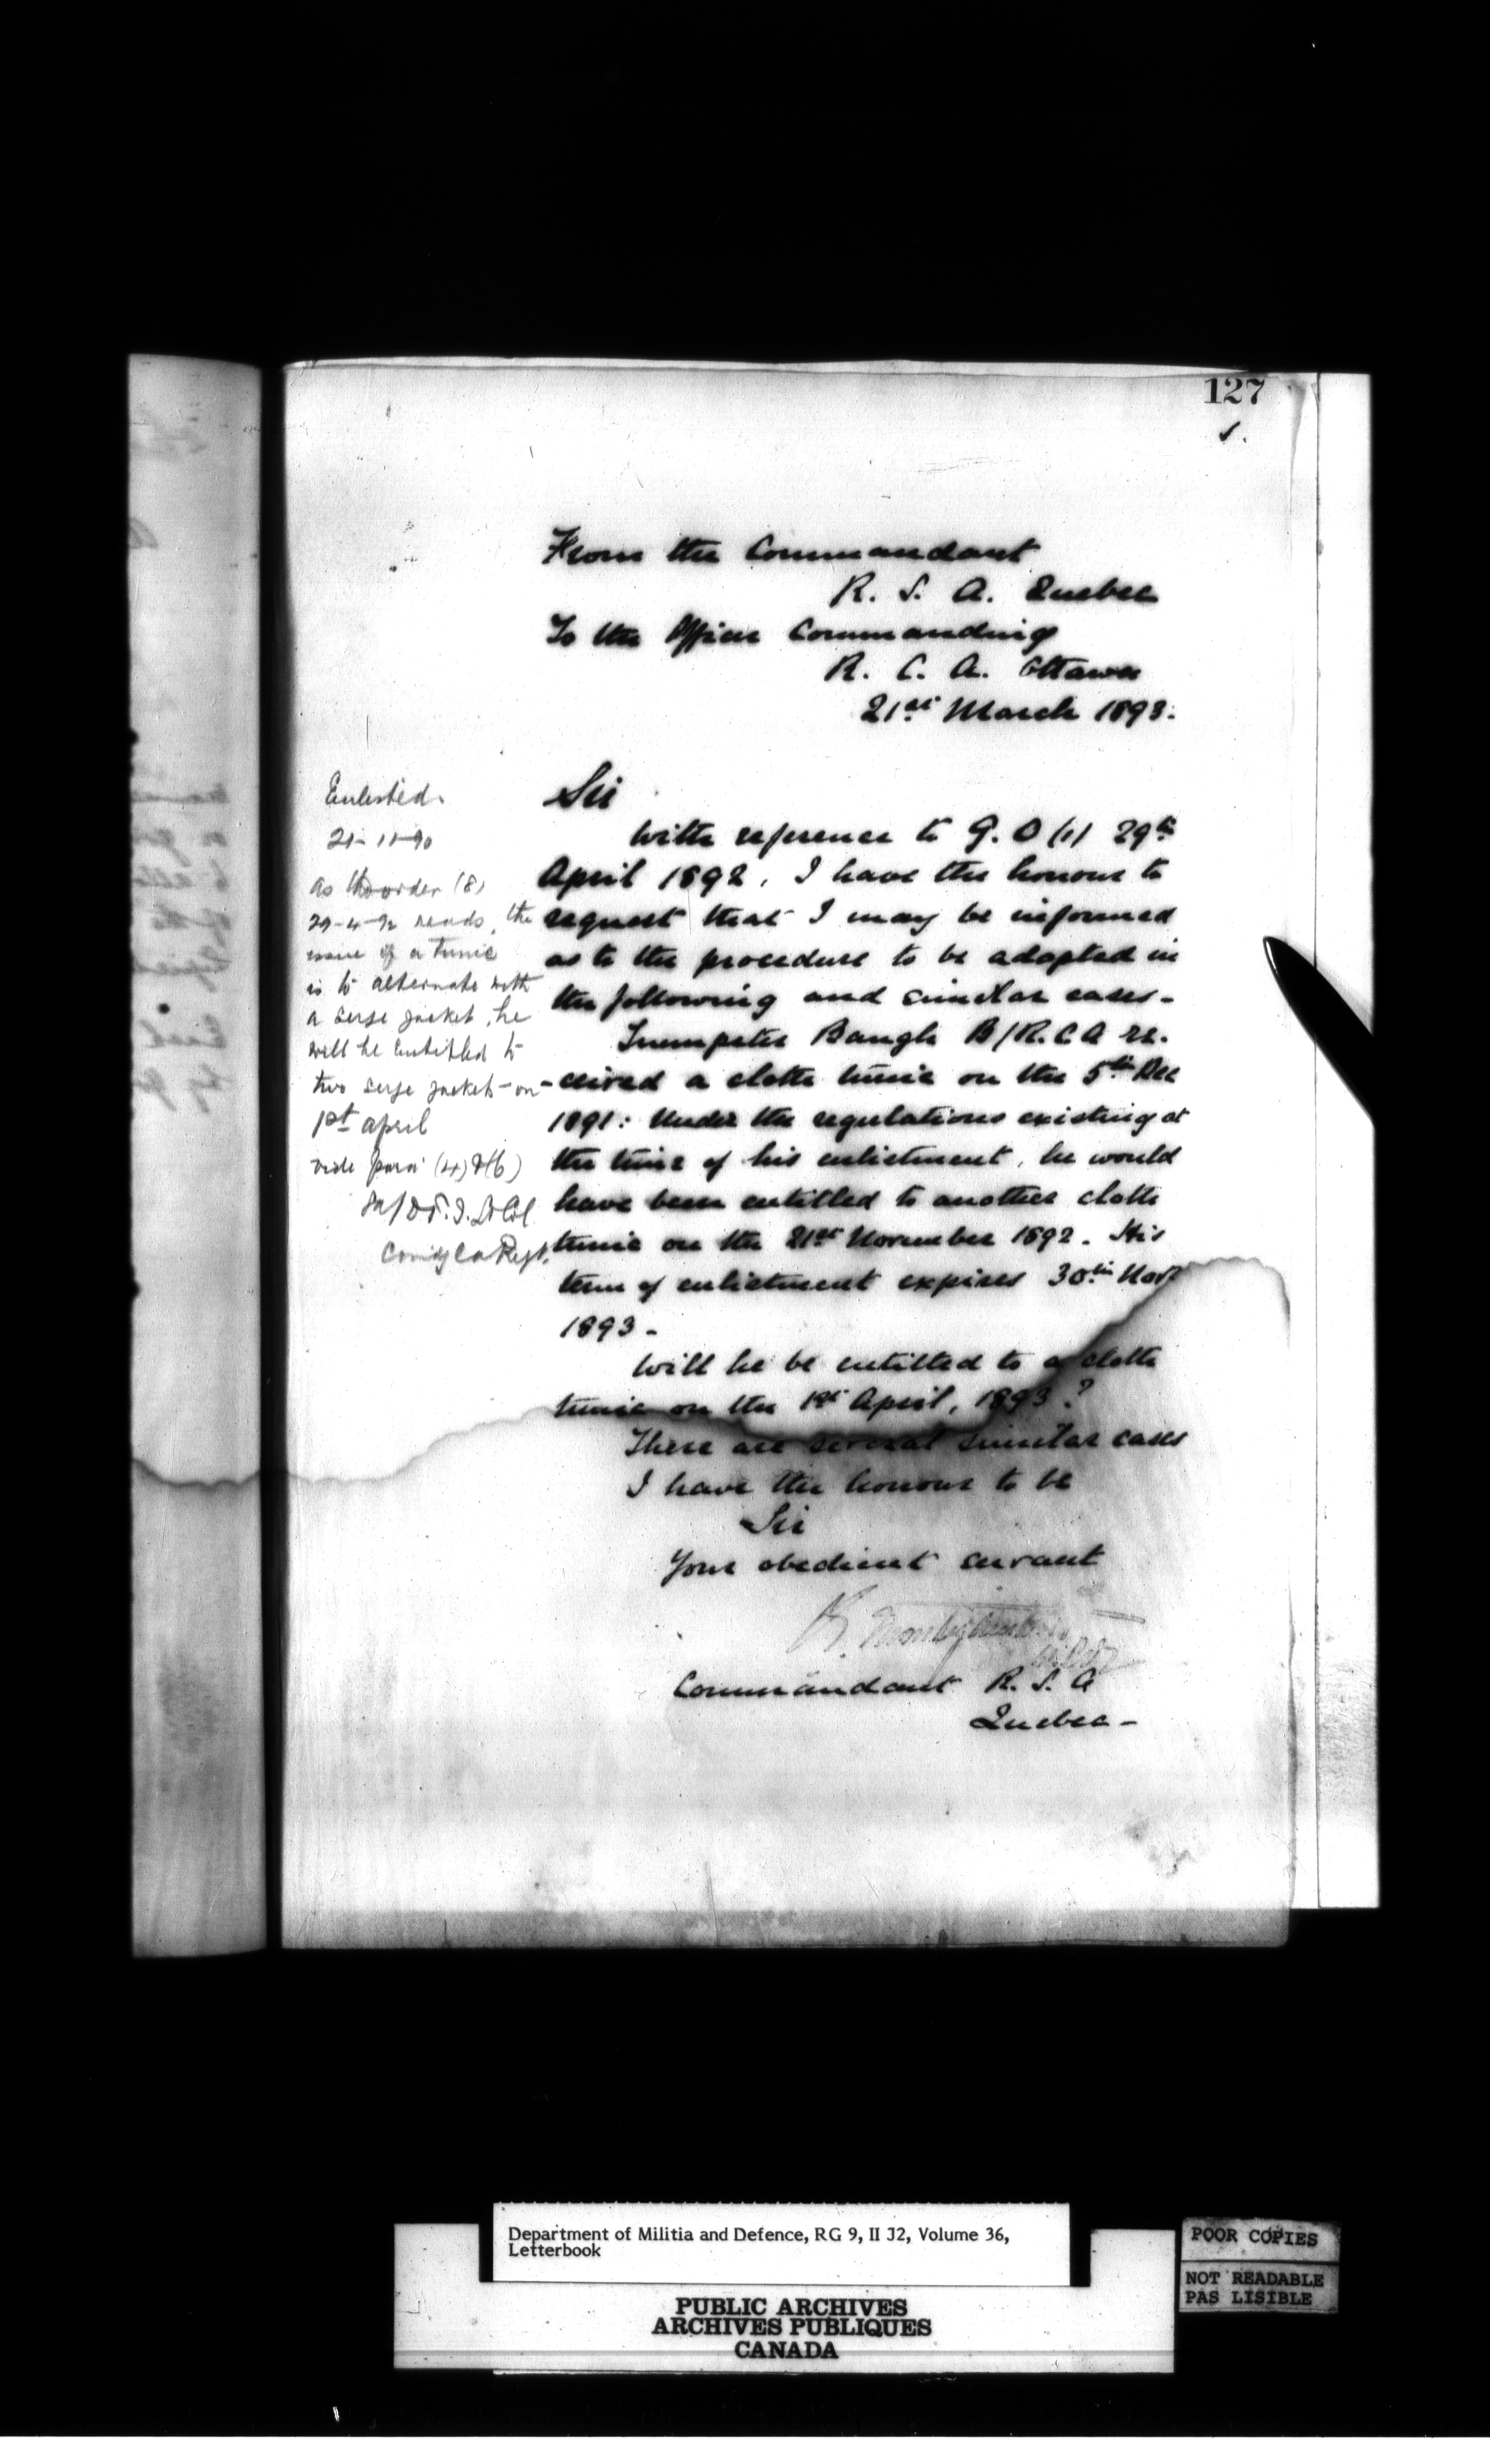 127
From the Commandant
R. S. A. Quebec
To the Officer Commanding
R. C. A. Ottawa
21st March 1893.
Sir
With reference to G. O (1) 29th
April 1892, I have the honour to
request that I may be informed
as to the procedure to be adopted in
the following and similar cases-
Trumpeter Baugh B/R.C.A re-
-ceived a cloth tunic on the 5th Dec
1891: Under the regulations existing at
the time of his enlistment, he would
have been entitled to another cloth
tunic on the 21st November 1892. His
term of enlistment expires 30th Novr
1893-
Will he be entitled to a cloth
tunic on the 1st April, 1893?
There are several similar cases
I have the honour to be
Sir
Your obedient servant
Commandant R. S. A
Quebec-
Enlisted.
21-11-90
as the order (8)
29-4-92 reads, the
issue of a tunic
is to alternate with
a serge jacket, he
will be entitled to
two serge jackets-on
1st april
vide para (4)
Lt Col
Comdg Ca Regt.
Department of Militia and Defence, RG 9, II J2, Volume 36,
Letterbook
PUBLIC ARCHIVES
ARCHIVES PUBLIQUES
CANADA
POOR COPIES
NOT READABLE
PAS LISIBLE